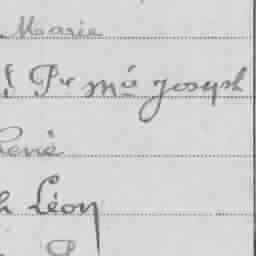 Marie
f Pre Má Joseph
René
h Léon